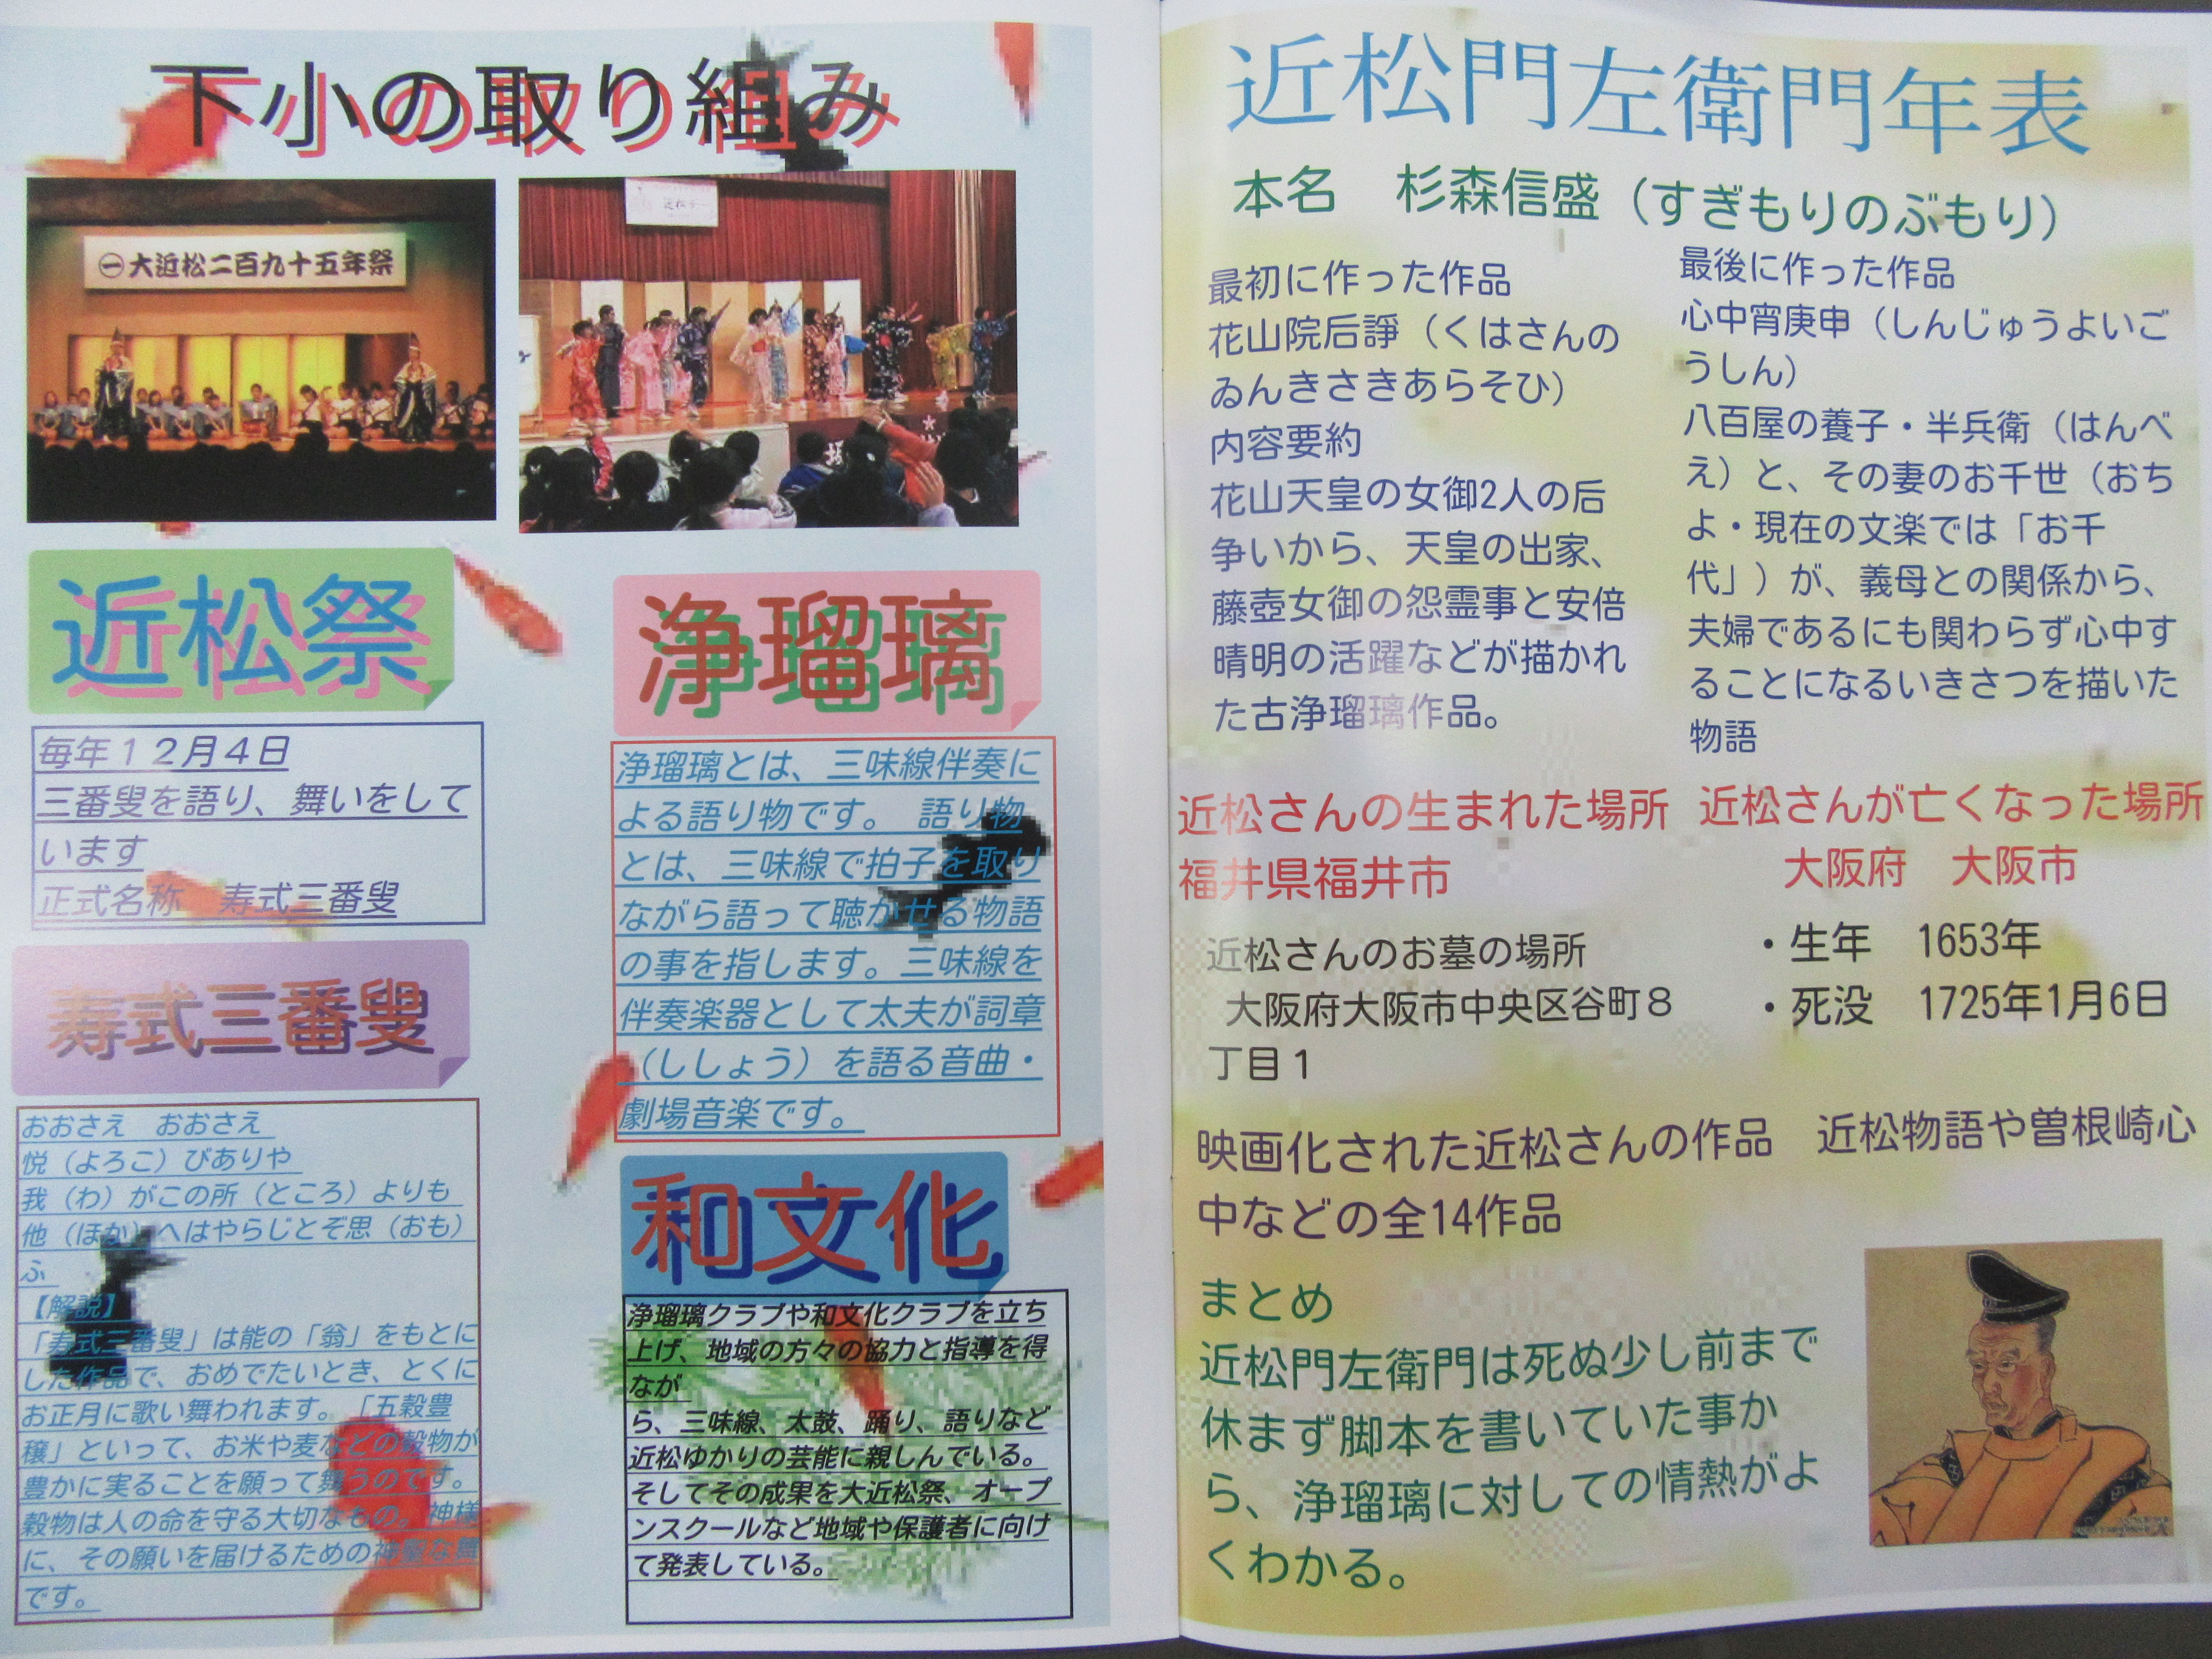 下小の取り組み
㊀大近松二百九十五年祭
近松デー
近松祭
毎年１２月４日
三番叟を語り、舞いをして
います
正式名称　寿式三番叟
寿式三番叟
おおさえ　おおさえ
悦（よろこ）びありや
我（わ）がこの所（ところ）よりも
他（ほか）へはやらじとぞ思（おも）
ふ
【解説】
「寿式三番叟」は能の「翁」をもとに
した作品で、おめでたいとき、とくに
お正月に歌い舞われます。「五穀豊
穣」といって、お米や麦などの穀物が
豊かに実ることを願って舞うのです。
穀物は人の命を守る大切なもの。神様
に、その願いを届けるための神聖な舞
です。
浄瑠璃
浄瑠璃とは、三味線伴奏に
よる語り物です。　語り物
とは、三味線で拍子を取り
ながら語って聴かせる物語
の事を指します。三味線を
伴奏楽器として太夫が詞章
（ししょう）を語る音曲・
劇場音楽です。
和文化
浄瑠璃クラブや和文化クラブを立ち
上げ、地域の方々の協力と指導を得
なが
ら、三味線、太鼓、踊り、語りなど
近松ゆかりの芸能に親しんでいる。
そしてその成果を大近松祭、オープ
ンスクールなど地域や保護者に向け
て発表している。
近松門左衛門年表
本名　杉森信盛（すぎもりのぶもり）
最初に作った作品
花山院后諍（くはさんの
ゐんきさきあらそひ）
内容要約
花山天皇の女御2人の后
争いから、天皇の出家、
藤壺女御の怨霊事と安倍
晴明の活躍などが描かれ
た古浄瑠璃作品。
最後に作った作品
心中宵庚申（しんじゅうよいご
うしん）
八百屋の養子・半兵衛（はんべ
え）と、その妻のお千世（おち
よ・現在の文楽では「お千
代」）が、義母との関係から、
夫婦であるにも関わらず心中す
ることになるいきさつを描いた
物語
近松さんの生まれた場所
福井県福井市
近松さんが亡くなった場所
大阪府　大阪市
近松さんのお墓の場所
大阪府大阪市中央区谷町８
丁目１
・生年　1653年
・死没　1725年1月6日
映画化された近松さんの作品　近松物語や曽根崎心
中などの全14作品
まとめ
近松門左衛門は死ぬ少し前まで
休まず脚本を書いていた事か
ら、浄瑠璃に対しての情熱がよ
くわかる。